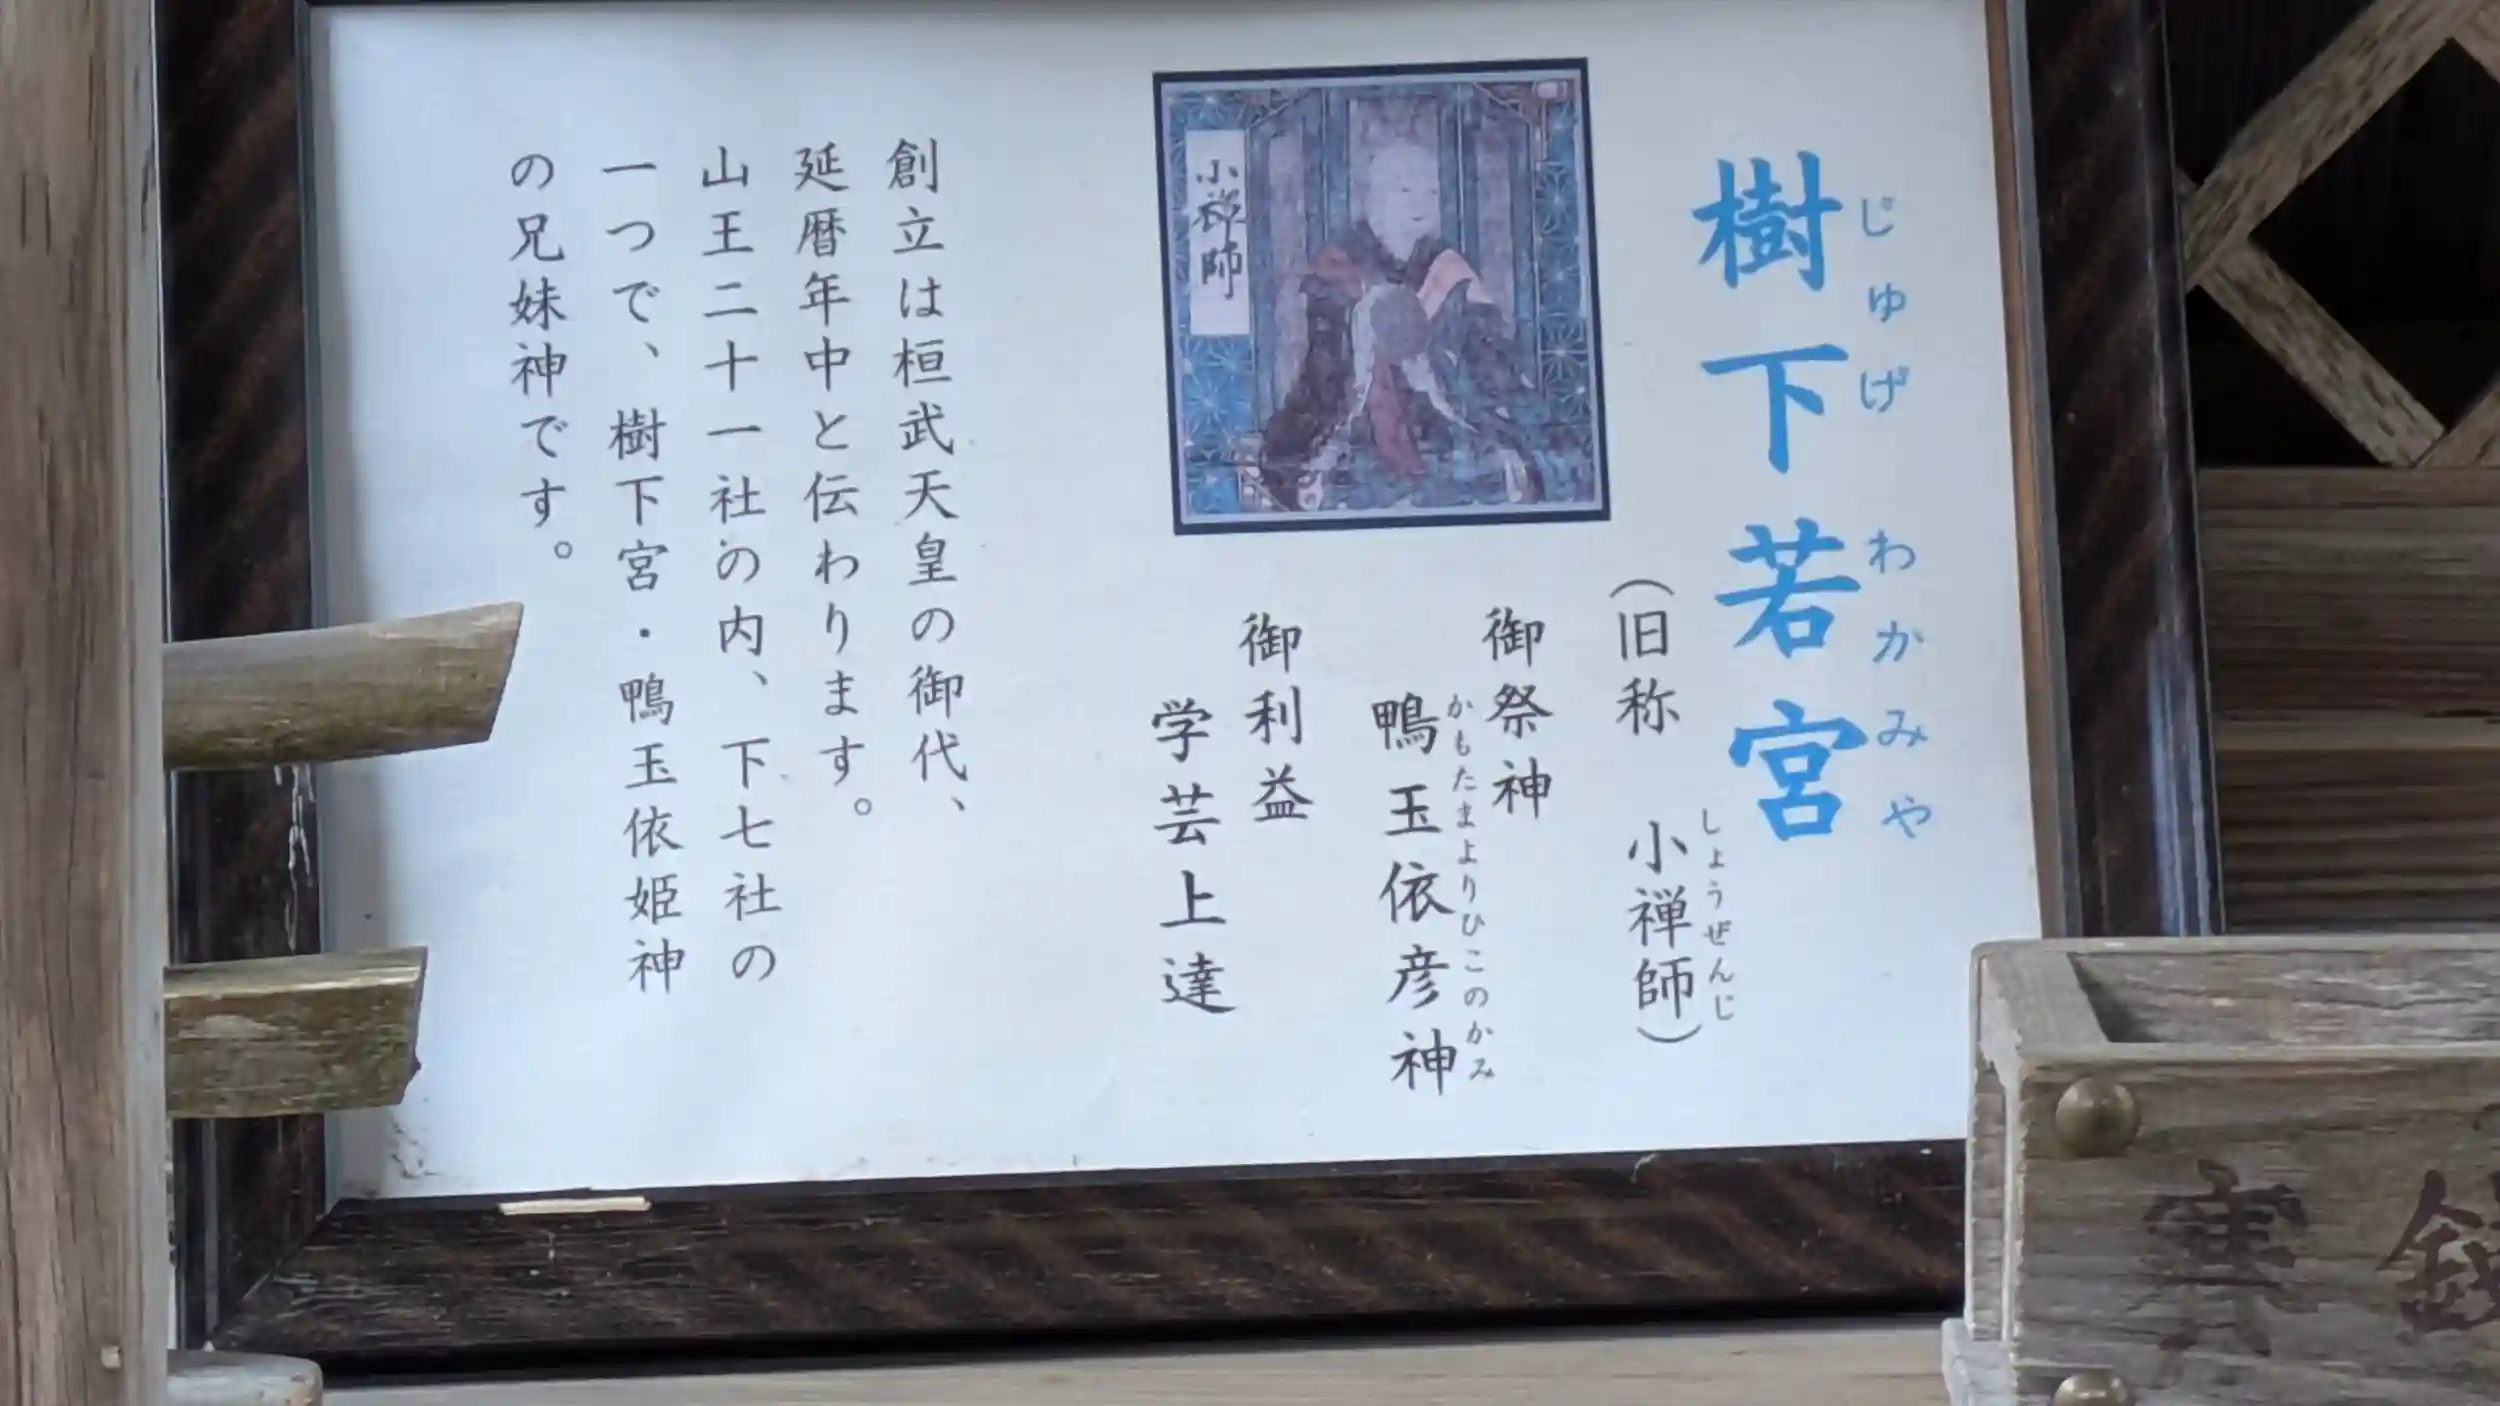 樹下若宮
じゅげ わかみや
(旧称 小禅師)
しょうぜんじ
御祭神
鴨玉依彦神
かもたまよりひこのかみ
御利益
学芸上達
小禅師
創立は桓武天皇の御代、
延暦年中と伝わります。
山王二十一社の内、下七社の
一つで、樹下宮・鴨玉依姫神
の兄妹神です。